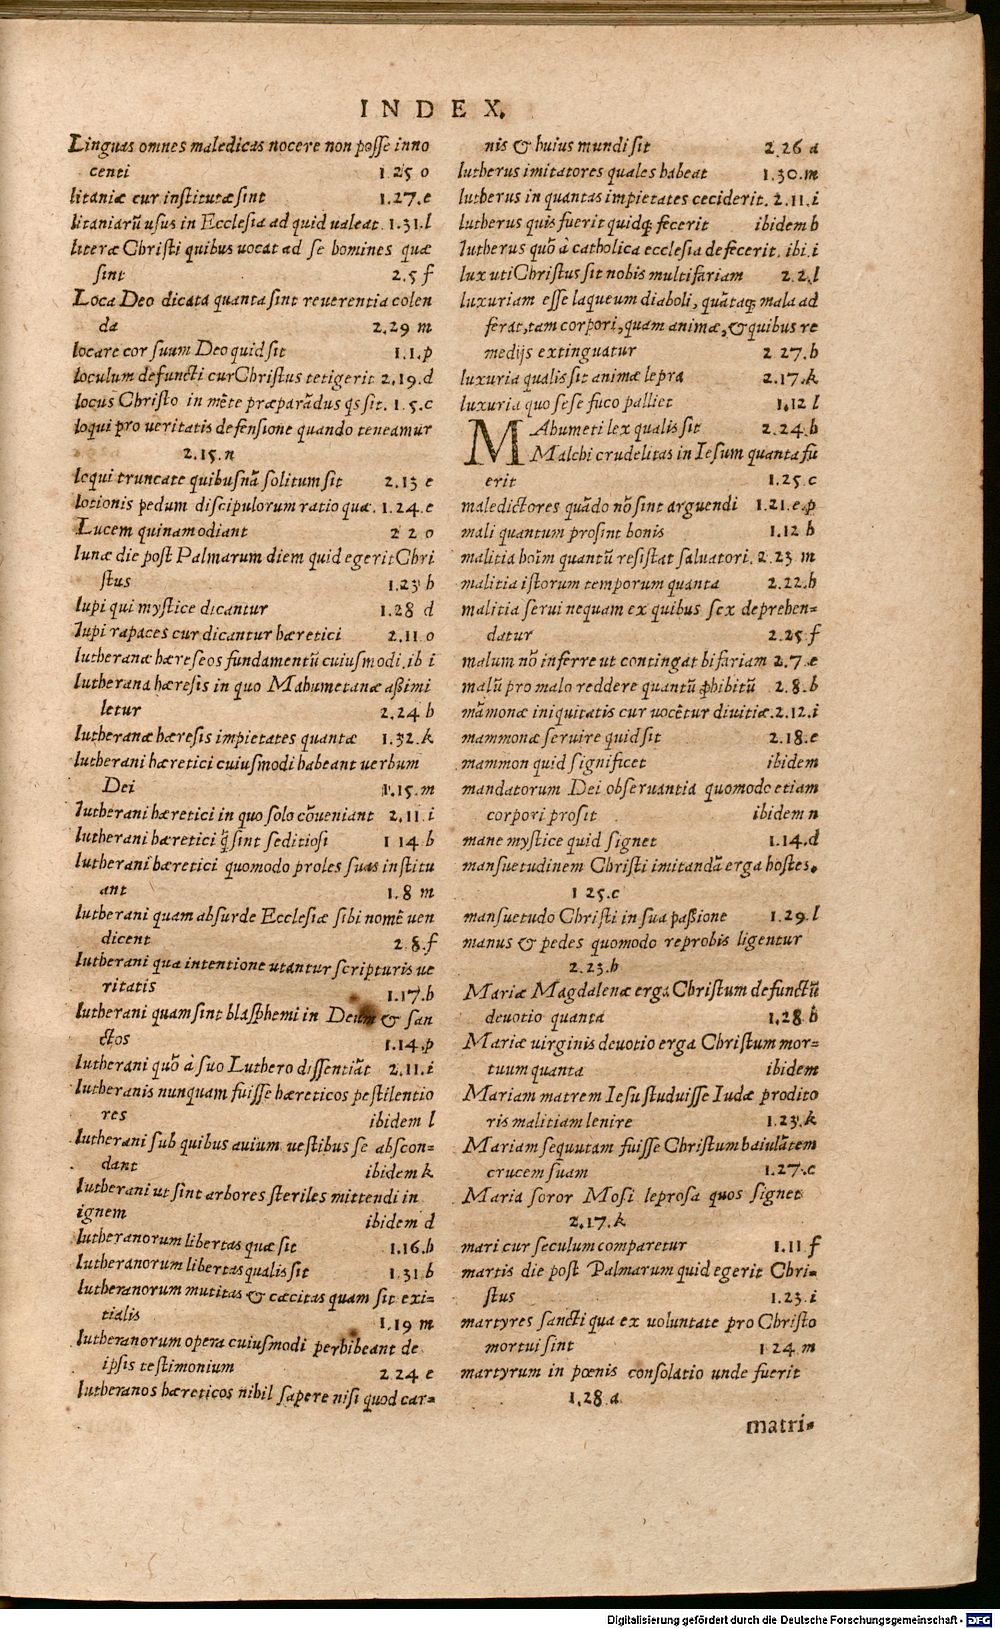 INDEX.
Linguas omnes maledicas nocere non posse inno
centi 1.25 o
litaniæ cur institutæ sint 1.27.e
litaniarũ usus in Ecclesia ad quid ualeat. 1.31.l
literæ Christi quibus uocat ad se homines quæ
sint 2.5 f
Loca Deo dicata quanta sint reuerentia colen
da 2.29 m
locare cor suum Deo quid sit 1.1.p
loculum defuncti cur Christus tetigerit 2.19.d
locus Christo in mẽte præparãdus qs sit. 1.5.c
loqui pro ueritatis defensione quando teneamur
2.15.n
loqui truncate quibusnã solitum sit 2.13 e
lotionis pedum discipulorum ratio quæ. 1.24.e
Lucem quinam odiant 2 2 o
lunæ die post Palmarum diem quid egerit Chri
stus 1.23 b
lupi qui mystice dicantur 1.28 d
lupi rapaces cur dicantur hæretici 2.11 o
lutheranæ hæreseos fundamentũ cuiusmodi. ib i
lutherana hæresis in quo Mahumetanæ aßimi
letur 2.24 b
lutheranæ hæresis impietates quantæ 1.32.k
lutherani hæretici cuiusmodi habeant uerbum
Dei 1.15.m
lutherani hæretici in quo solo cõueniant 2.11.i
lutherani hæretici q̃ sint seditiosi 1 14 b
lutherani hæretici quomodo proles suas institu
ant 1.8 m
lutherani quam absurde Ecclesiæ sibi nomẽ uen
dicent 2.8.f
lutherani qua intentione utantur scripturis ue
ritatis 1.17.b
lutherani quam sint blasphemi in Deum & san
ctos 1.14.p
lutherani quõ à suo Luthero dissentiãt 2.11.i
lutheranis nunquam fuisse hæreticos pestilentio
res ibidem l
lutherani sub quibus auium uestibus se abscon=
dant ibidem k
lutherani ut sint arbores steriles mittendi in
ignem ibidem d
lutheranorum libertas quæ sit 1.16.b
lutheranorum libertas qualis sit 1.31 b
lutheranorum mutitas & cæcitas quam sit exi=
tialis 1.19 m
lutheranorum opera cuiusmodi perhibeant de
ipsis testimonium 2 24 e
lutheranos hæreticos nihil sapere nisi quod car=
nis & huius mundi sit 2.26 a
lutherus imitatores quales habeat 1.30.m
lutherus in quantas impietates ceciderit. 2.11.i
lutherus quis fuerit quidq; fecerit ibidem b
lutherus quõ à catholica ecclesia defecerit. ibi.i
lux uti Christus sit nobis multifariam 2.2.l
luxuriam esse laqueum diaboli, quãtaq; mala ad
ferat, tam corpori, quam animæ, & quibus re
medijs extinguatur 2 27.b
luxuria qualis sit animæ lepra 2.17.k
luxuria quo sese fuco palliet 1.12 l
MAhumeti lex qualis sit 2.24.b
Malchi crudelitas in Iesum quanta fu
erit 1.25.c
maledictores quãdo nõ sint arguendi 1.21.e.p
mali quantum prosint bonis 1.12 b
malitia hoĩm quantũ resistat saluatori. 2.23 m
malitia istorum temporum quanta 2.22.b
malitia serui nequam ex quibus sex deprehen=
datur 2.25.f
malum nõ inferre ut contingat bifariam 2.7.e
malũ pro malo reddere quantũ ꝓhibitũ 2.8.b
mãmonæ iniquitatis cur uocẽtur diuitiæ. 2.12.i
mammonæ seruire quid sit 2.18.e
mammon quid significet ibidem
mandatorum Dei obseruantia quomodo etiam
corpori prosit ibidem n
mane mystice quid signet 1.14.d
mansuetudinem Christi imitandã erga hostes.
1 25.c
mansuetudo Christi in sua paßione 1.29.l
manus & pedes quomodo reprobis ligentur
2.23.b
Mariæ Magdalenæ erga Christum defunctũ
deuotio quanta 1.28 b
Mariæ uirginis deuotio erga Christum mor=
tuum quanta ibidem
Mariam matrem Iesu studuisse Iudæ prodito
ris malitiam lenire 1.23.k
Mariam sequutam fuisse Christum baiulãtem
crucem suam 1.27.c
Maria soror Mosi leprosa quos signet
2.17.k
mari cur seculum comparetur 1.11 f
martis die post Palmarum quid egerit Chri=
stus 1.23.i
martyres sancti qua ex uoluntate pro Christo
mortui sint 1 24.m
martyrum in pœnis consolatio unde fuerit
1.28.a
matri=
Digitalisierung gefördert durch die Deutsche Forschungsgemeinschaft - DFG